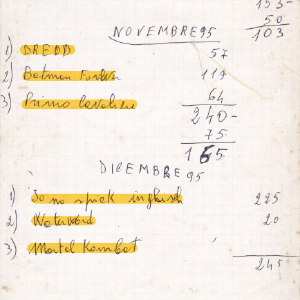 153-
50
103
NOVEMBRE 95
1) DREDD 57
2) Batman Forever 119
3) Primo Cavaliere 64
240-
75
165
DICEMBRE 95
1) Io no spik inglish 225
2) Waterword 20
3) Mortal Kombat
245